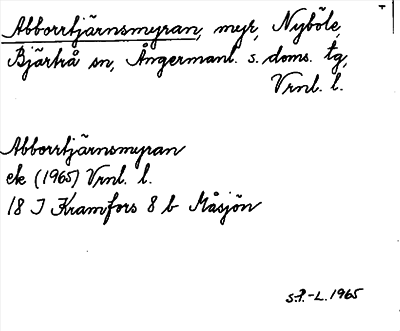 Abborrtjärnsmyran, myr, Nyböle,
Bjärtrå sn, Ångermanl. s. doms. tg,
Vrnl. l.
Abborrtjärnsmyran
ek (1965) Vrnl. l.
18 J Kramfors 8 b Måsjön
S.P.-L. 1965